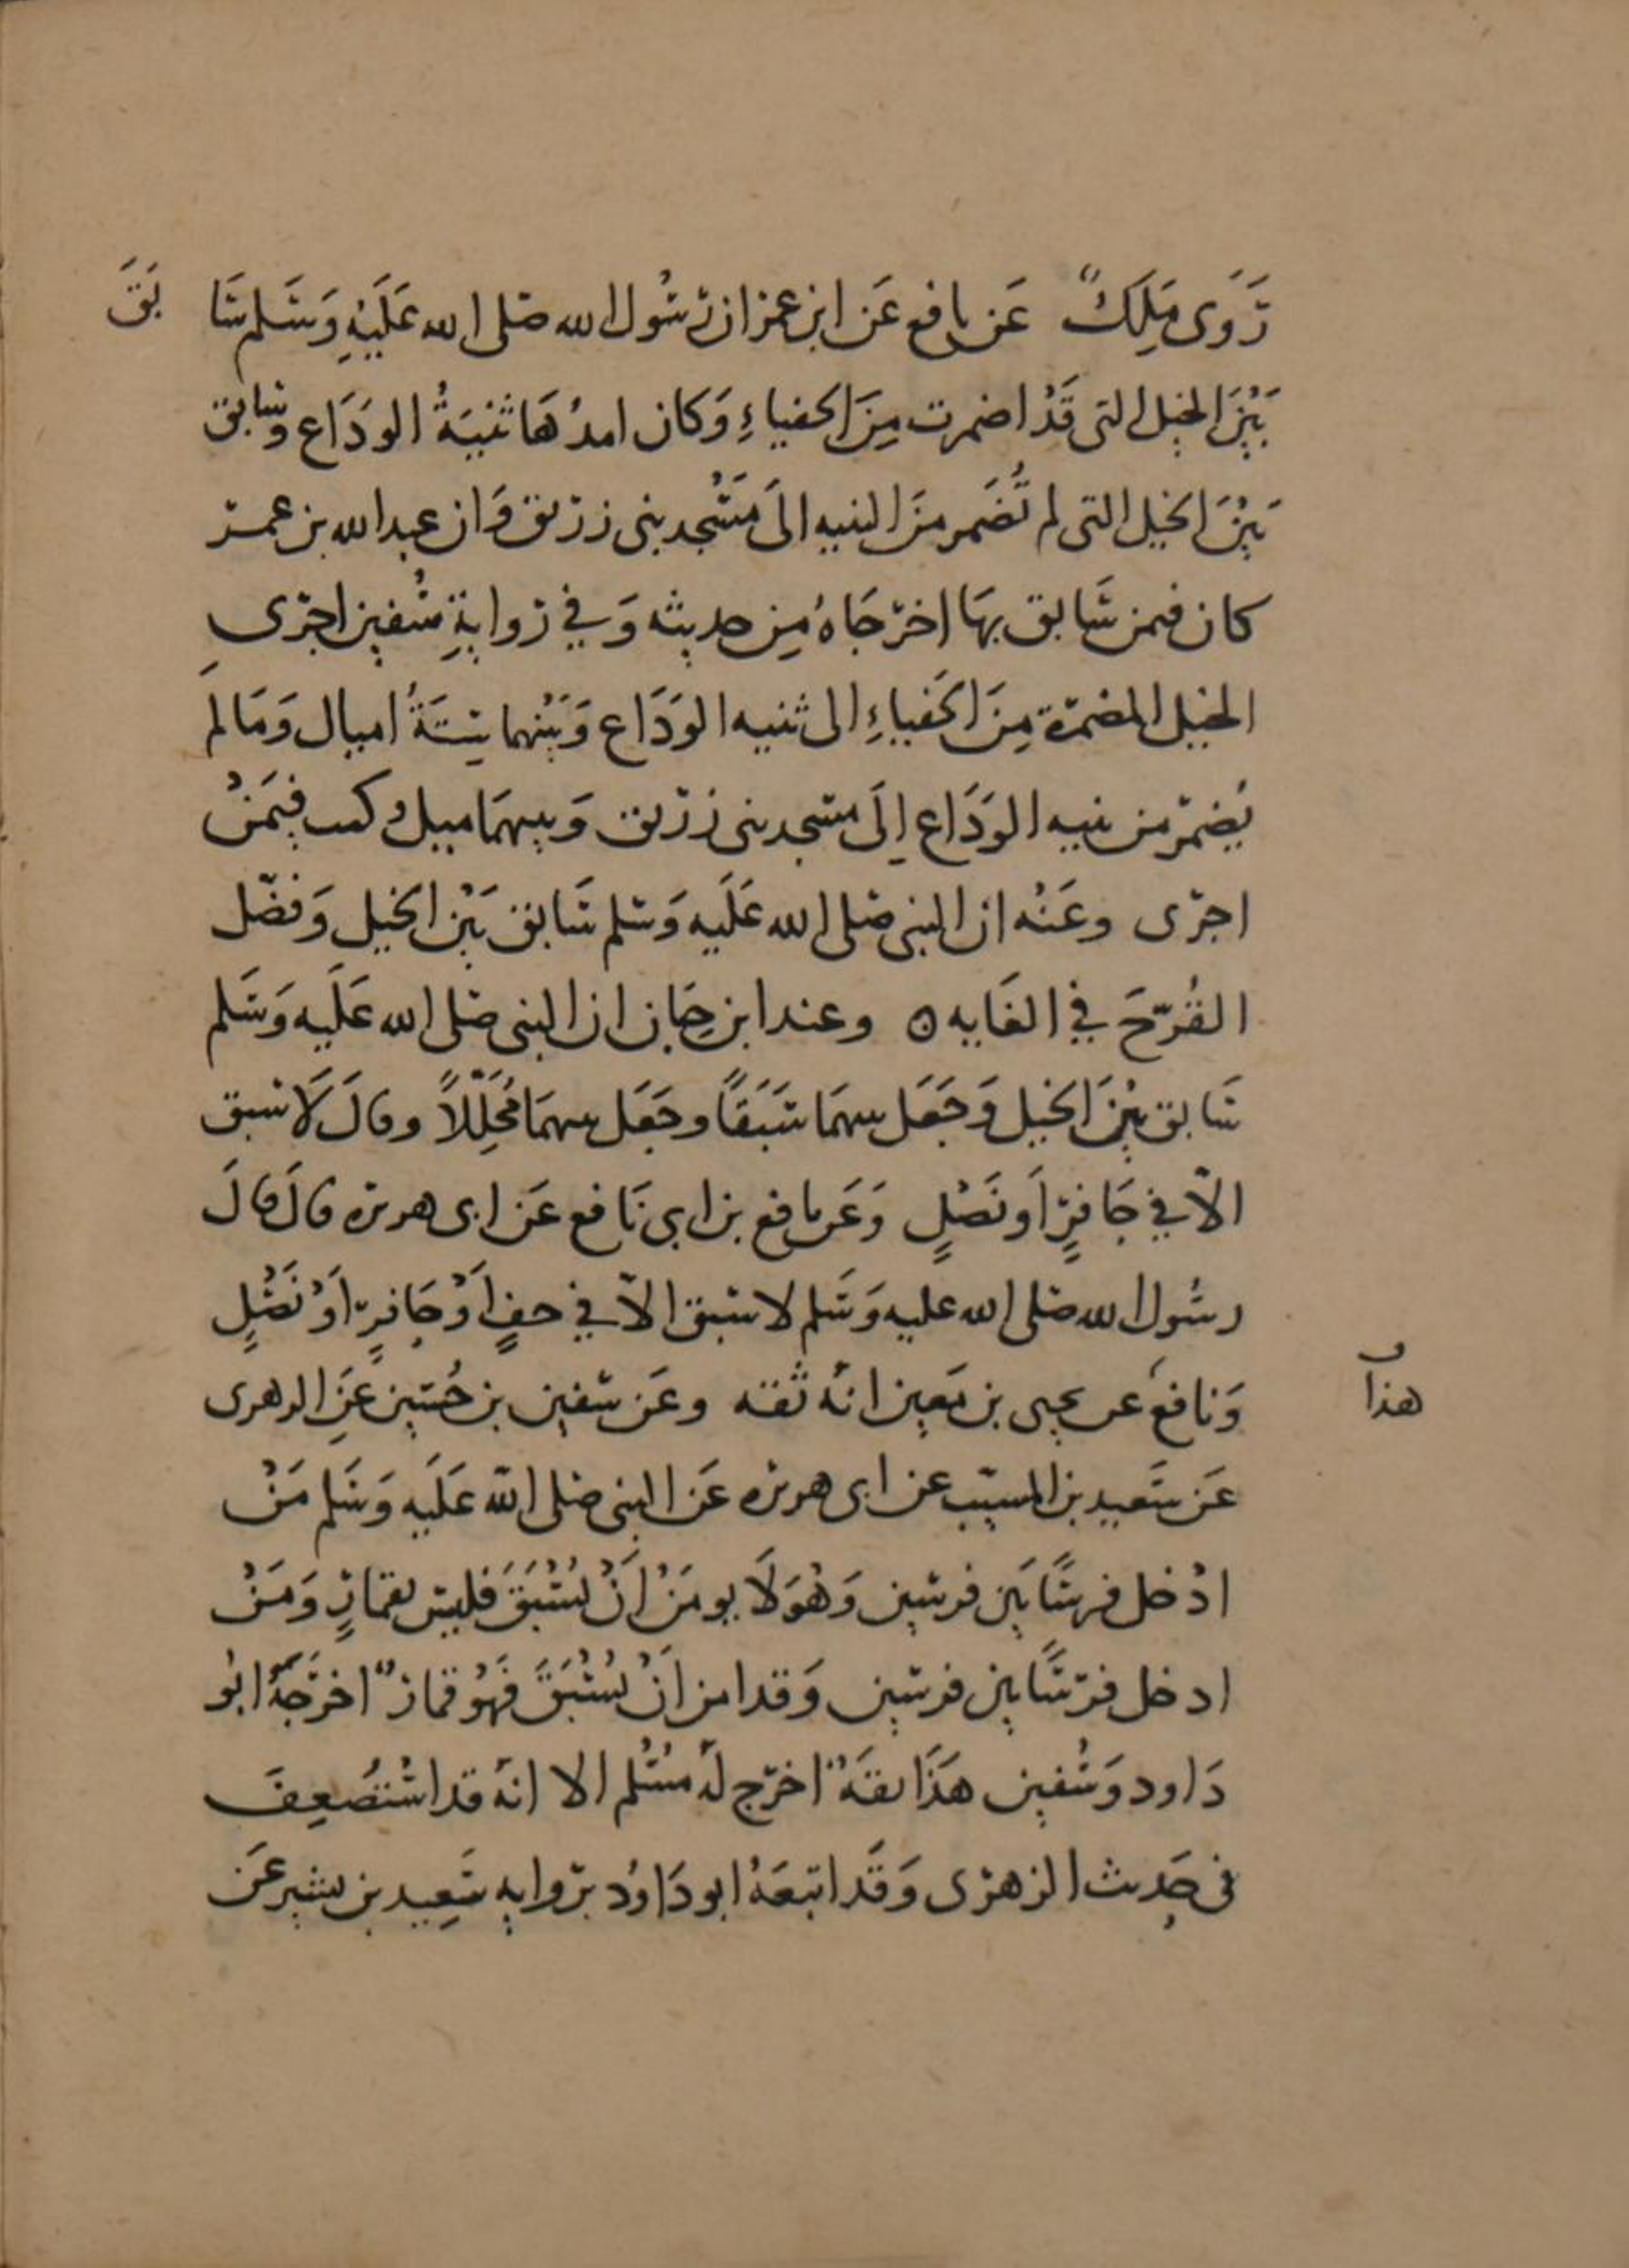 رَوَى مَلِكٌ عَن نافع عَن ابن عمر ان رسُول الله صلى الله عَلَيْهِ وَسَلم سَابَقَ
بَيْنَ الخيل التى قَدْ اضمرت مِنَ الحفياءِ وَكان امدُهَا ثنيَةُ الودَاع وسَابق
بَيْنَ الخيل التى لم تُضَمر منَ الثنيه الىَ مَسْجد بنى زريق وَان عبد الله بن عمر
كان فيمن سَابق بهَا اخرجَاهُ مِن حديثه وَفي روايةِ سُفين اجرى
الخيل المضمرة مِنَ الحَفياءِ الى ثنيه الودَاع وَبَيْنهما ستَةُ اميال وَمَا لم
يُضمر من ثنيه الودَاع اِلَى مسجد بنى زريق وَبينهمَا ميل وكنت فيمَنْ
اجرى وعَنْه ان النبى صلى الله عَلَيه وَسلم سَابق بَيْن الخيل وَفضّل
القُرّحَ في الغَايه ٥ وعند ابن حِبان ان النبى صلى الله عَلَيه وَسَلم
سَابق بيْنَ الخيل وَجَعَل بينهمَا سَبَقًا وجَعَل بينهمَا مُحَلِّلاً وقالَ لَا سبق
الاّ في حَافرٍ اَو نَصْلٍ وَعَن نافع بن ابى نَافع عَن ابى هريره قالَ قالَ
رسُول الله صلى الله عليه وَسَلم لا سبق الاّ في خفٍ اَوْ حَافرٍ اوْ نَصْلٍ
وَنافع عن يحيى بن مَعين انهُ ثقه وعَن سفين بن حُسَين عَنِ الزهرى
هذا
عَن سَعيد بن المسيّب عن ابى هريره عَن النبى صلى الله عَلَيه وَسَلم مَنْ
ادْخل فرسًا بَين فرسين وَهُوَ لَا يومَنْ اَنْ يُسْبَقَ فليسَ بقمارٍ وَمَنْ
ادخل فرسًا بين فرسين وَقد امن اَنْ يُسْبَقَ فهُو قمارٌ اخرَجَهُ ابُو
دَاود وَسُفين هَذَا ثقَةٌ اخرج لهُ مسْلم الا انهُ قد اسْتُضعِفَ
فى حَديث الزهرى وَقَد اتبعَهُ ابو دَاوُد بروايه سَعِيد بن بشير عَن